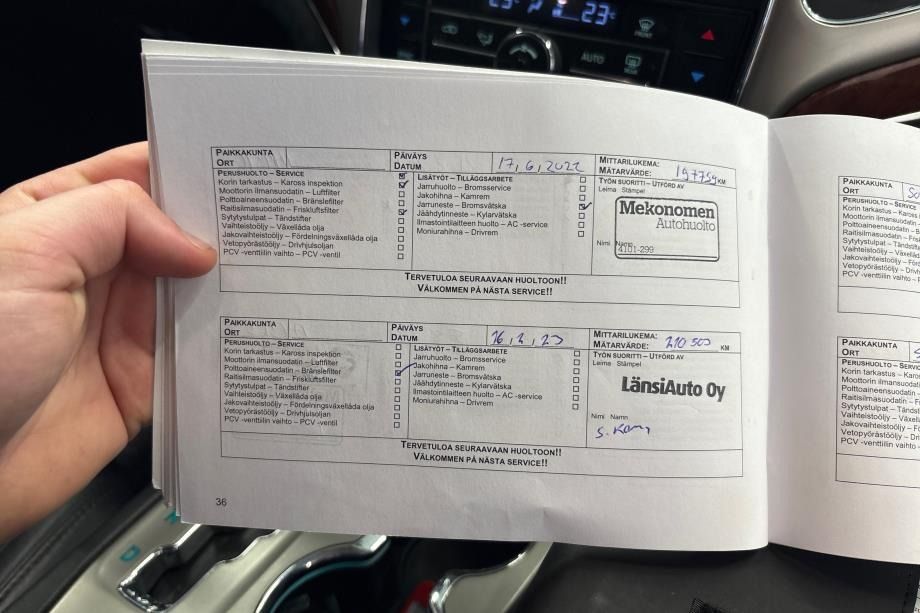 23°C 23°C
FRONT
AUTO
REAR
D
PAIKKAKUNTA
ORT
PÄIVÄYS
DATUM
17, 6, 2022
MITTARILUKEMA:
MÄTARVÄRDE: 197759 KM
PERUSHUOLTO – SERVICE
Korin tarkastus – Kaross inspektion
Moottorin ilmansuodatin – Luftfilter
Polttoaineensuodatin – Bränslefilter
Raitisilmasuodatin – Friskluftsfilter
Sytytystulpat – Tändstifter
Vaihteistoöljy – Växellåda olja
Jakovaihteistoöljy – Fördelningsväxellåda olja
Vetopyörästööljy – Drivhjulsoljan
PCV -venttiilin vaihto – PCV -ventil
LISÄTYÖT – TILLÄGGSARBETE
Jarruhuolto – Bromsservice
Jakohihna – Kamrem
Jarruneste – Bromsvätska
Jäähdytinneste – Kylarvätska
Ilmastointilaitteen huolto – AC -service
Moniurahihna – Drivrem
TYÖN SUORITTI – UTFÖRD AV
Leima Stämpel
Mekonomen
Autohuolto
Nimi Namn
4101-299
TERVETULOA SEURAAVAAN HUOLTOON!!
VÄLKOMMEN PÅ NÄSTA SERVICE!!
PAIKKAKUNTA
ORT
PÄIVÄYS
DATUM
16, 2, 23
MITTARILUKEMA:
MÄTARVÄRDE: 210 503 KM
PERUSHUOLTO – SERVICE
Korin tarkastus – Kaross inspektion
Moottorin ilmansuodatin – Luftfilter
Polttoaineensuodatin – Bränslefilter
Raitisilmasuodatin – Friskluftsfilter
Sytytystulpat – Tändstifter
Vaihteistoöljy – Växellåda olja
Jakovaihteistoöljy – Fördelningsväxellåda olja
Vetopyörästööljy – Drivhjulsoljan
PCV -venttiilin vaihto – PCV -ventil
LISÄTYÖT – TILLÄGGSARBETE
Jarruhuolto – Bromsservice
Jakohihna – Kamrem
Jarruneste – Bromsvätska
Jäähdytinneste – Kylarvätska
Ilmastointilaitteen huolto – AC -service
Moniurahihna – Drivrem
TYÖN SUORITTI – UTFÖRD AV
Leima Stämpel
LänsiAuto Oy
Nimi Namn
TERVETULOA SEURAAVAAN HUOLTOON!!
VÄLKOMMEN PÅ NÄSTA SERVICE!!
36
PAIKKAKUNTA
ORT
PERUSHUOLTO – SERVICE
Korin tarkastus – Ka
Moottorin ilmansuodat
Polttoaineensuodatin –
Raitisilmasuodatin – Fr
Sytytystulpat – Tändsti
Vaihteistoöljy – Växellå
Jakovaihteistoöljy – För
Vetopyörästööljy – Driv
PCV -venttiilin vaihto – P
PAIKKAKUNTA
ORT
PERUSHUOLTO – SERVI
Korin tarkastus – Kaross
Moottorin ilmansuodatin
Polttoaineensuodatin – B
Raitisilmasuodatin – Fris
Sytytystulpat – Tändstift
Vaihteistoöljy – Växellåd
Jakovaihteistoöljy – Förd
Vetopyörästööljy – Drivh
PCV -venttiilin vaihto – P